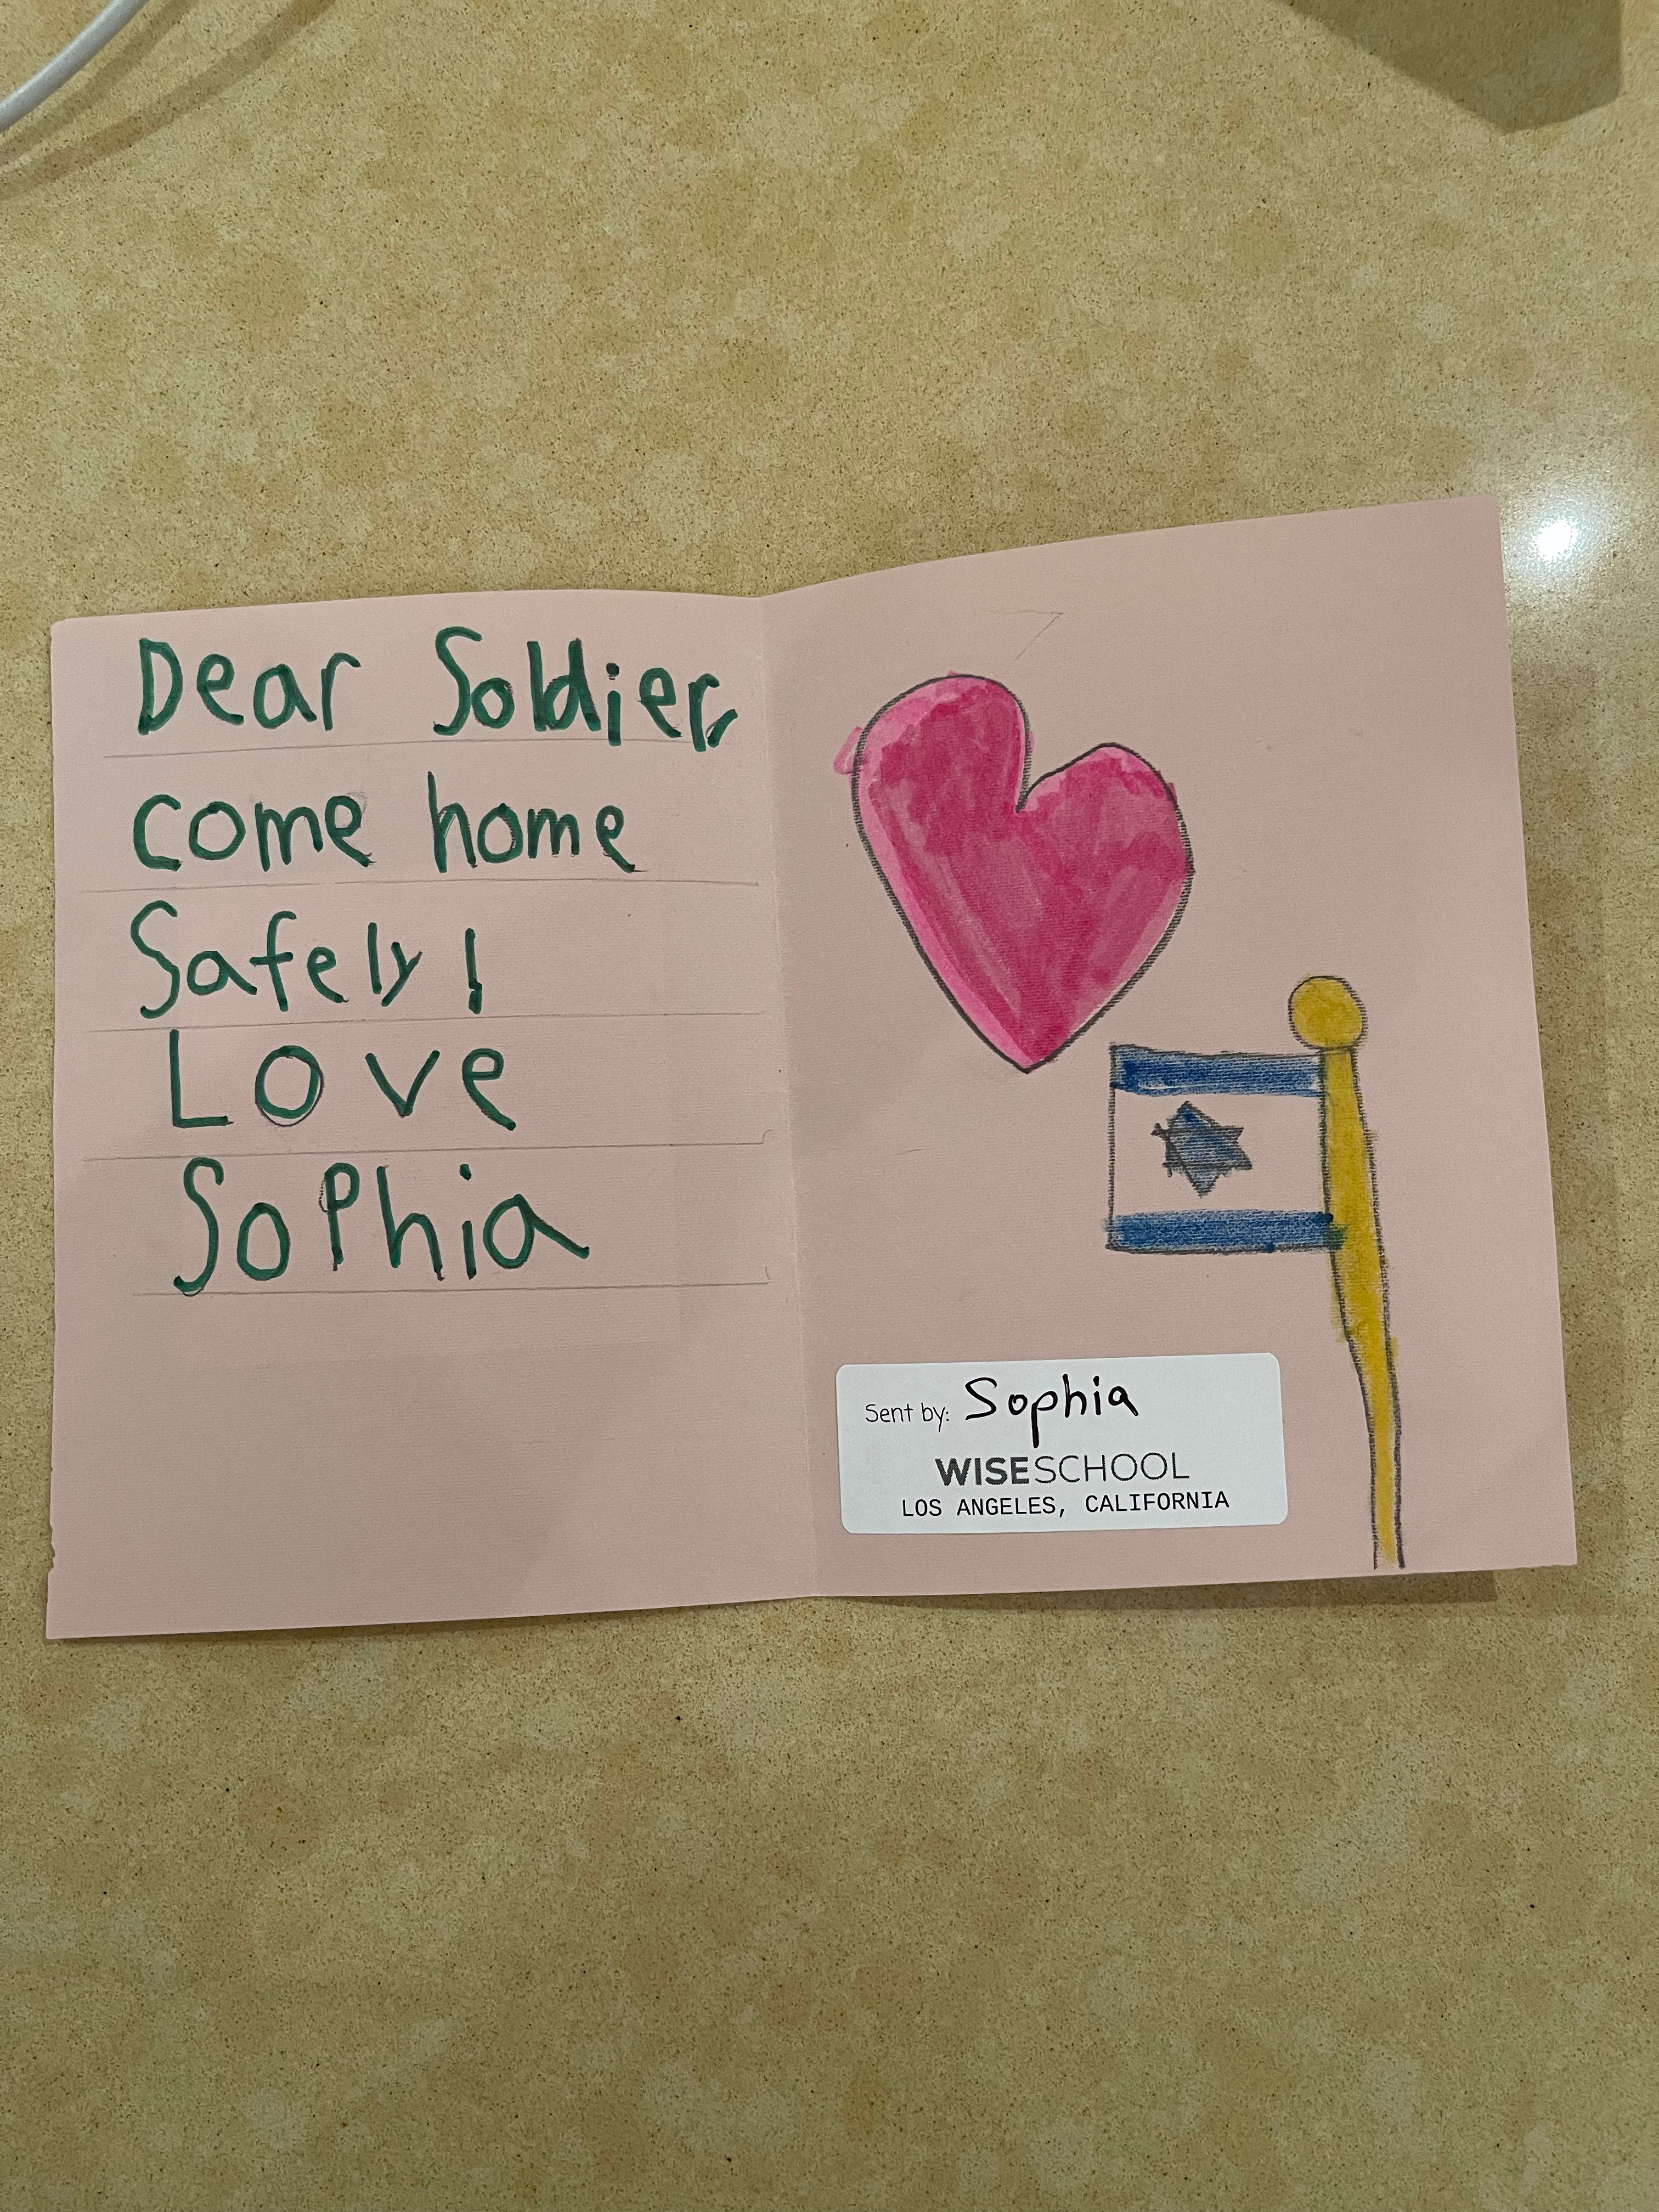 Dear Soldier,
come home
Safely!
Love
Sophia
Sent by: Sophia
WISESCHOOL
LOS ANGELES, CALIFORNIA